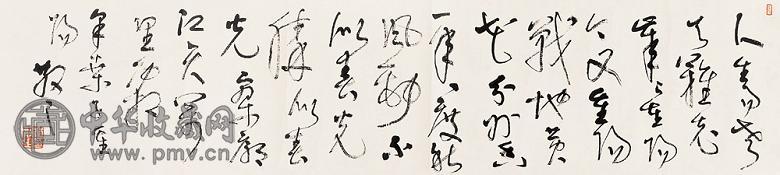 人生易老
天難老
歲歲重陽
今又重陽
戰地黃
花分外香
一年一度秋
風勁不
似春光
勝似春
光寥廓
江天萬
里霜
中华收藏网
www.pmv.cn